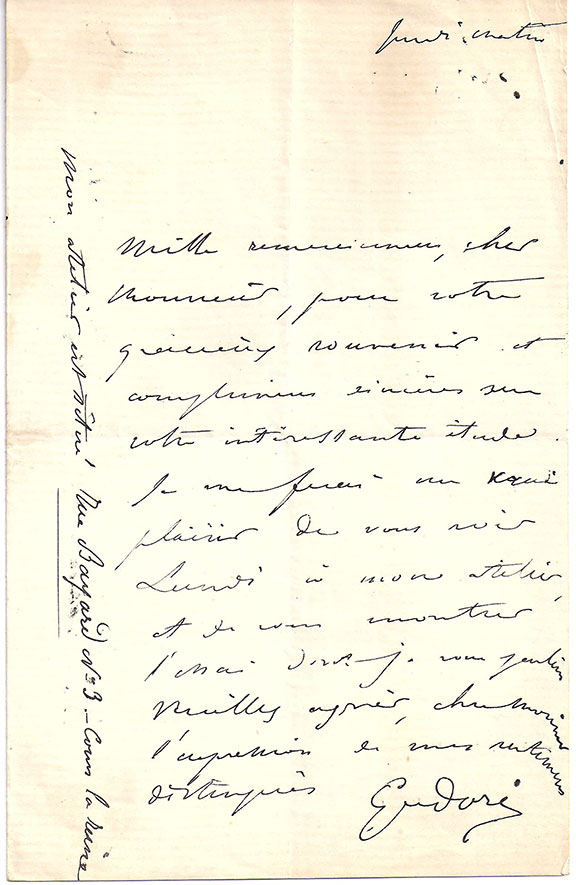 Jeudi matin
Mille remerciemens, cher
Monsieur, pour votre
gracieux souvenir et
complimens sincères sur
votre intéressante étude.
Je me ferai un vrai
plaisir de vous voir
Lundi à mon atelier,
et de vous montrer
l'essai dont je vous parlais
Veuillez agréer, cher Monsieur
l'expression de mes sentimens
distingués
GveDoré
Mon atelier est situé Rue Bayard No 3 – Cours la reine